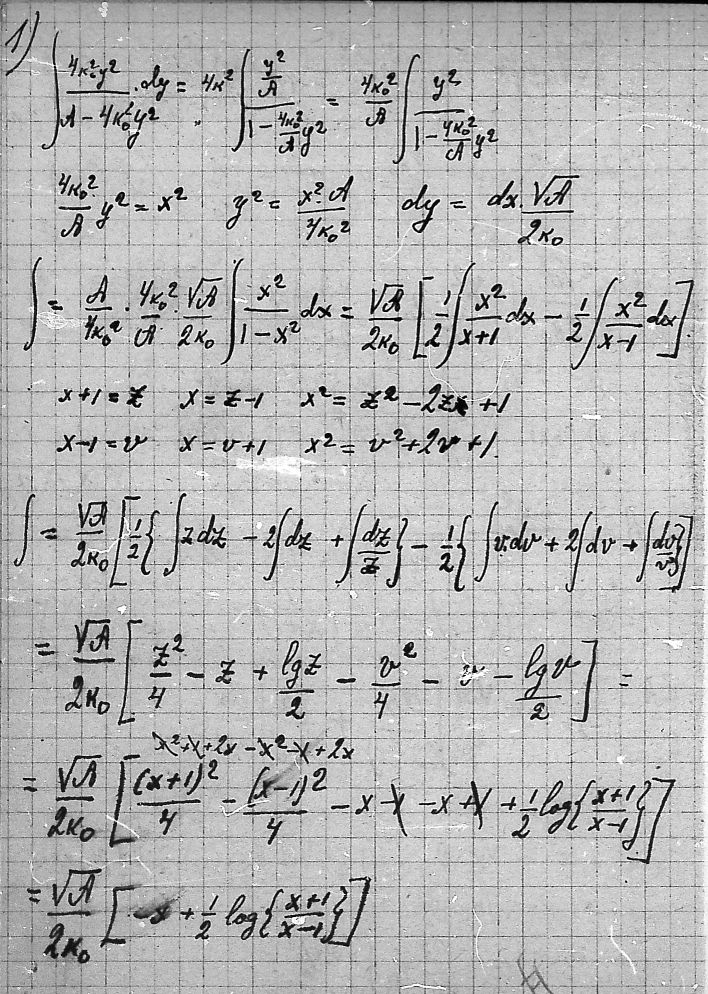 1)
∫ 4κ₀²y² / (A − 4κ₀²y²) · dy = 4κ² ∫ (y²/A) / (1 − (4κ₀²/A) y²) = 4κ₀²/A ∫ y² / (1 − (4κ₀²/A) y²)
4κ₀²/A y² = x² y² = x²·A / 4κ₀² dy = dx·√A / 2κ₀
∫ = A/4κ₀² · 4κ₀²/A · √A/2κ₀ ∫ x²/(1−x²) dx = √A/2κ₀ [ 1/2 ∫ x²/(x+1) dx − 1/2 ∫ x²/(x−1) dx ]
x+1 = z x = z−1 x² = z² − 2z + 1
x−1 = v x = v+1 x² = v² + 2v + 1.
∫ = √A/2κ₀ [ 1/2 { ∫ z dz − 2∫ dz + ∫ dz/z } − 1/2 { ∫ v·dv + 2∫ dv + ∫ dv/v } ]
= √A/2κ₀ [ z²/4 − z + lg z/2 − v²/4 − v − lg v/2 ] =
x² + x + 2x − x² − x + 2x
= √A/2κ₀ [ (x+1)²/4 − (x−1)²/4 − x − 1 − x + 1 + 1/2 log{ (x+1)/(x−1) } ]
= √A/2κ₀ [ −x + 1/2 log{ (x+1)/(x−1) } ]